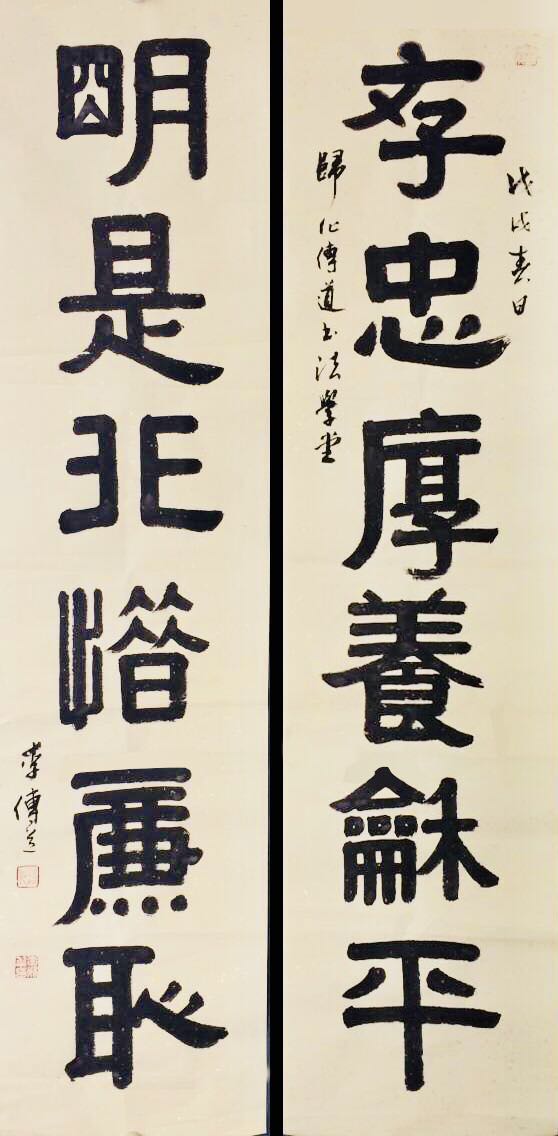 戊戌春日
存忠厚養龢平
歸化傳道书法學堂
朙是非惜廉恥
李傳道